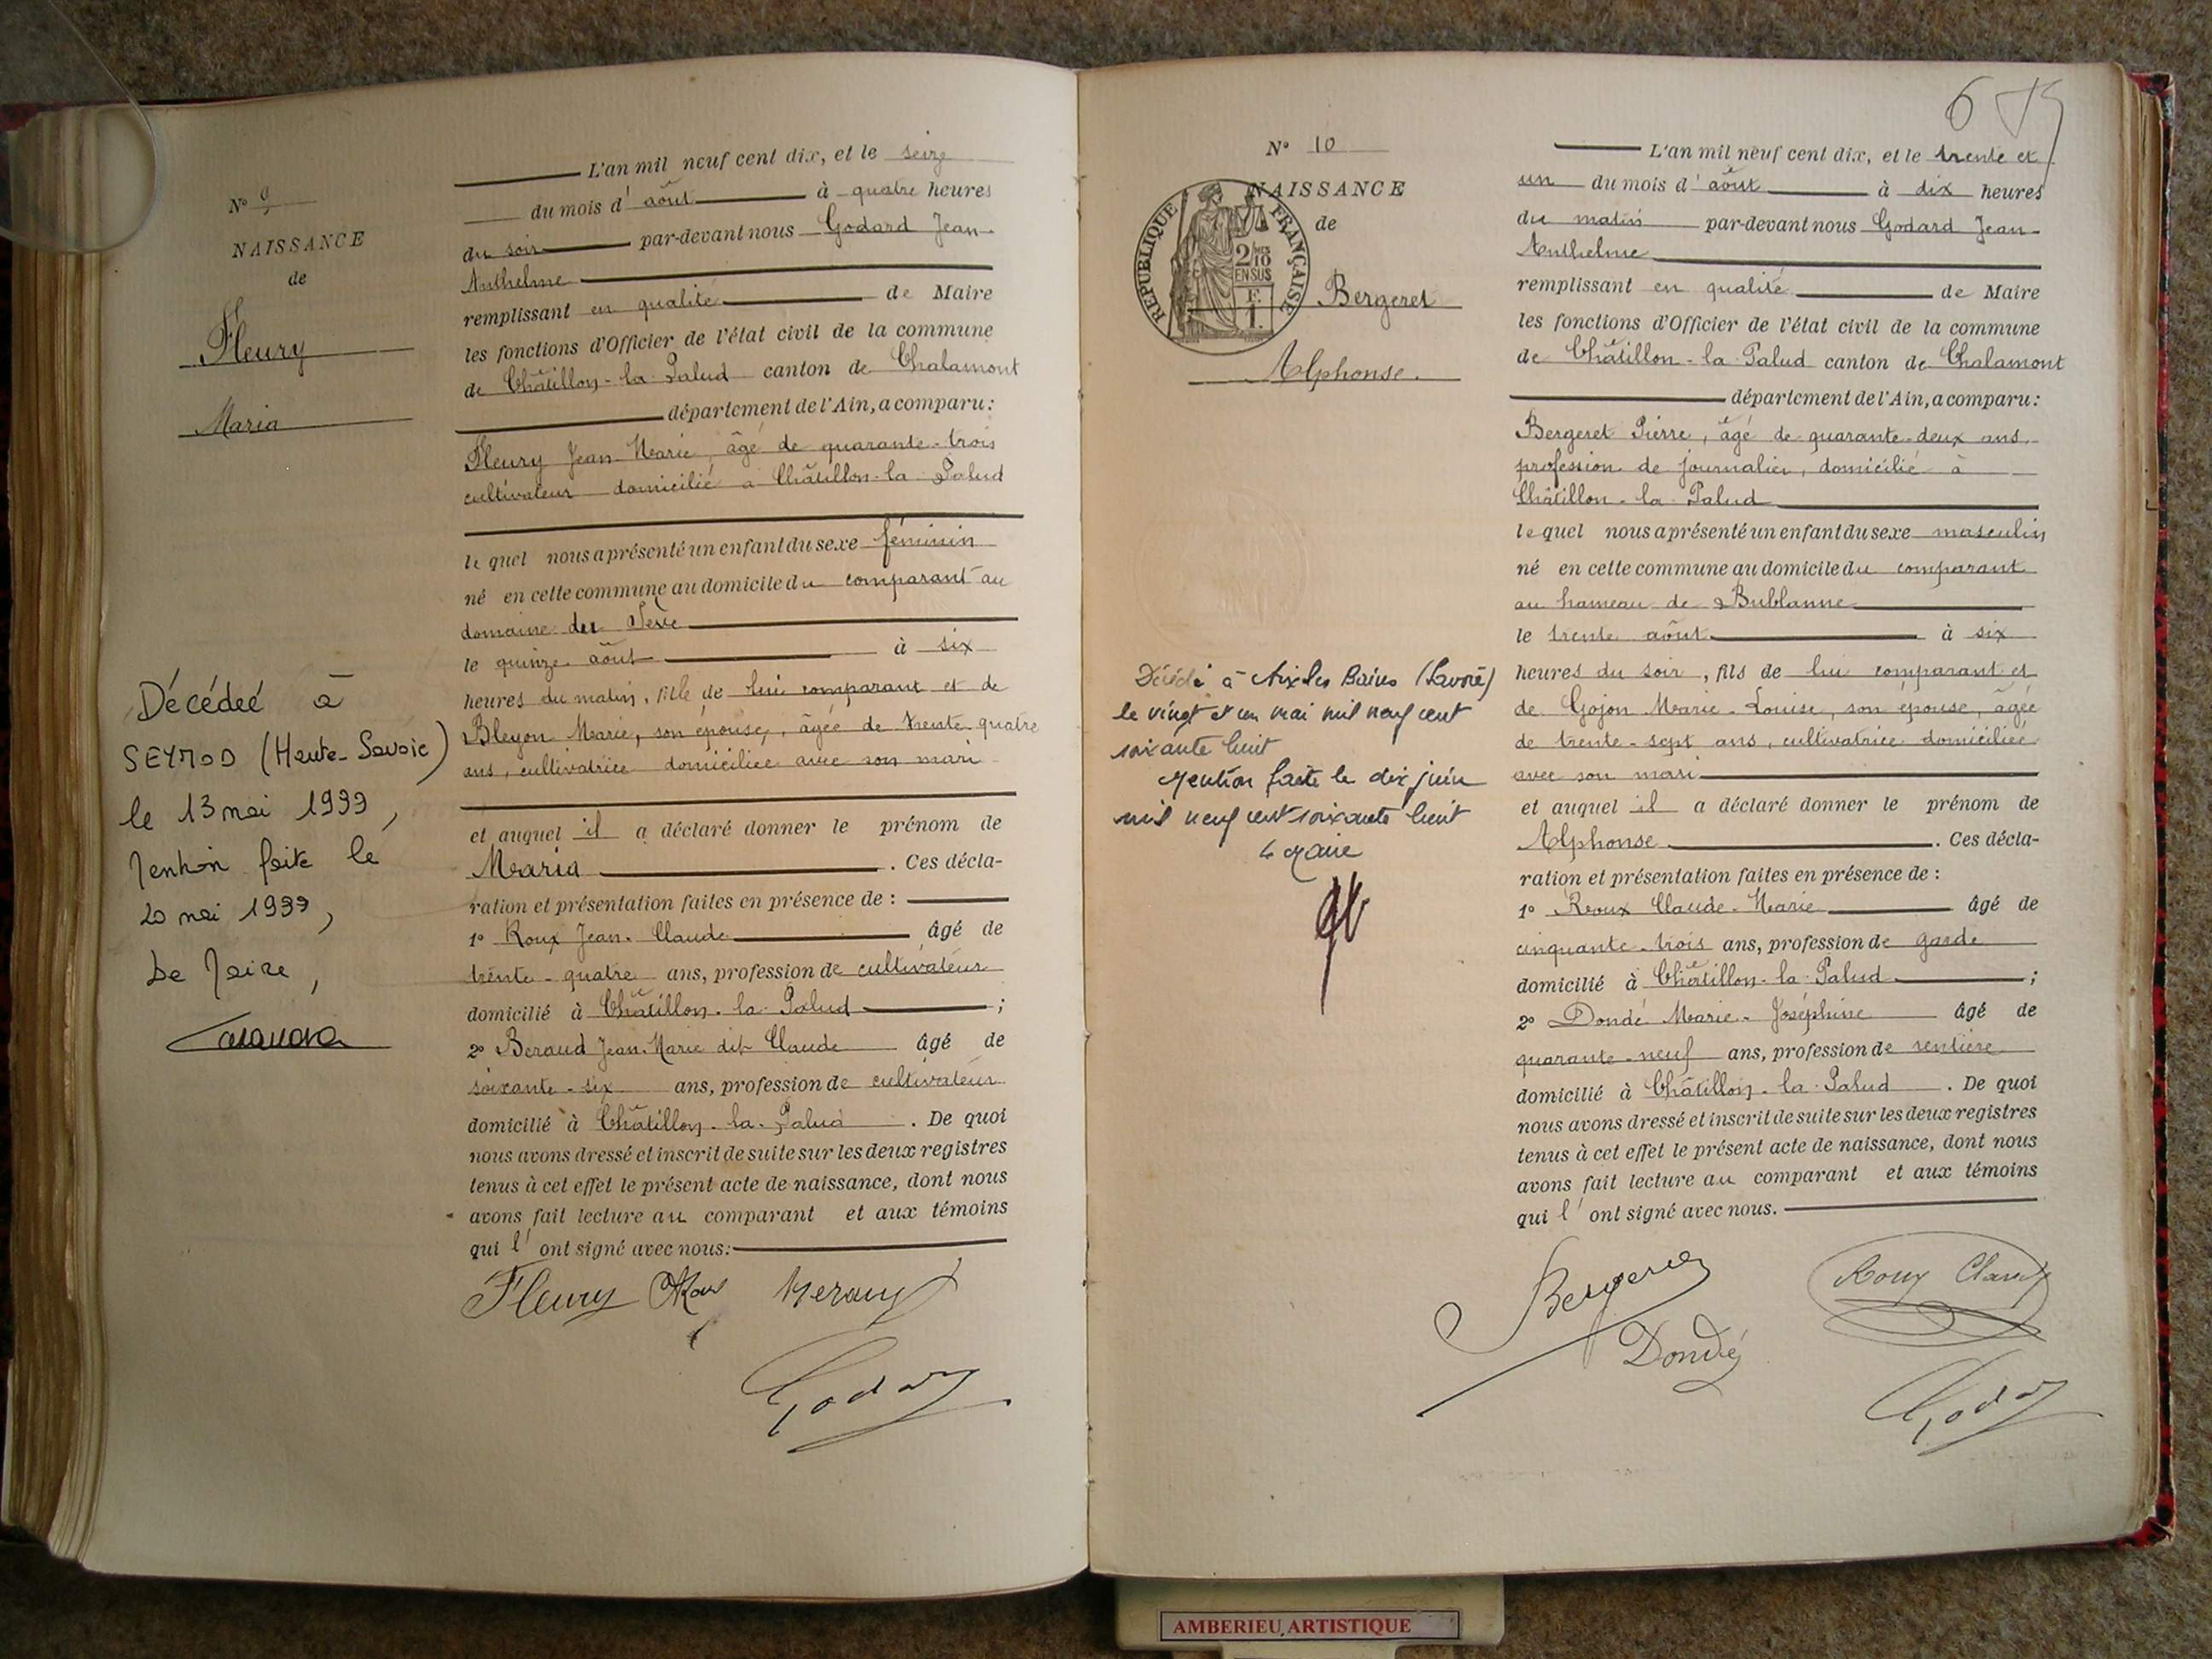 N° 9
NAISSANCE
de
Fleury
Maria
Décédée à
SEYNOD (Haute-Savoie)
le 13 mai 1999,
Mention faite le
20 mai 1999,
Le Maire,
L'an mil neuf cent dix, et le seize
du mois d'août à quatre heures
du soir par-devant nous Godard Jean-
Anthelme
remplissant en qualité de Maire
les fonctions d'Officier de l'état civil de la commune
de Châtillon-la-Palud canton de Chalamont
département de l'Ain, a comparu:
Fleury Jean Marie, âgé de quarante-trois
cultivateur domicilié à Châtillon-la-Palud
lequel nous a présenté un enfant du sexe féminin
né en cette commune au domicile du comparant au
domaine du
le quinze août à six
heures du matin, fille de lui comparant et de
Bleyon Marie, son épouse, âgée de trente-quatre
ans, cultivatrice domiciliée avec son mari
et auquel il a déclaré donner le prénom de
Maria. Ces décla-
ration et présentation faites en présence de :
1° Roux Jean-Claude âgé de
trente-quatre ans, profession de cultivateur
domicilié à Châtillon-la-Palud ;
2° Beraud Jean-Marie dit Claude âgé de
soixante-six ans, profession de cultivateur
domicilié à Châtillon-la-Palud. De quoi
nous avons dressé et inscrit de suite sur les deux registres
tenus à cet effet le présent acte de naissance, dont nous
avons fait lecture au comparant et aux témoins
qui l'ont signé avec nous:
Fleury
Godard
6
N° 10
NAISSANCE
de
REPUBLIQUE FRANÇAISE
2/10 EN SUS
F. 1.
Bergeret
Alphonse.
Décédé à Aix les Bains (Savoie)
le vingt et un mai mil neuf cent
soixante huit
Mention faite le dix juin
mil neuf cent soixante huit
Le Maire
L'an mil neuf cent dix, et le trente et
un du mois d'août à dix heures
du matin par-devant nous Godard Jean-
Anthelme
remplissant en qualité de Maire
les fonctions d'Officier de l'état civil de la commune
de Châtillon-la-Palud canton de Chalamont
département de l'Ain, a comparu:
Bergeret Pierre, âgé de quarante-deux ans
profession de journalier, domicilié à
Châtillon-la-Palud
lequel nous a présenté un enfant du sexe masculin
né en cette commune au domicile du comparant
au hameau de Bublanne
le trente août à six
heures du soir, fils de lui comparant et
de Gojon Marie-Louise, son épouse, âgée
de trente-sept ans, cultivatrice domiciliée
avec son mari
et auquel il a déclaré donner le prénom de
Alphonse. Ces décla-
ration et présentation faites en présence de :
1° Roux Claude-Marie âgé de
cinquante-trois ans, profession de garde
domicilié à Châtillon-la-Palud ;
2° Dondé Marie-Joséphine âgé de
quarante-neuf ans, profession de rentière
domicilié à Châtillon-la-Palud. De quoi
nous avons dressé et inscrit de suite sur les deux registres
tenus à cet effet le présent acte de naissance, dont nous
avons fait lecture au comparant et aux témoins
qui l'ont signé avec nous.
Bergeret Roux Claude
Dondé
Godard
AMBERIEU ARTISTIQUE